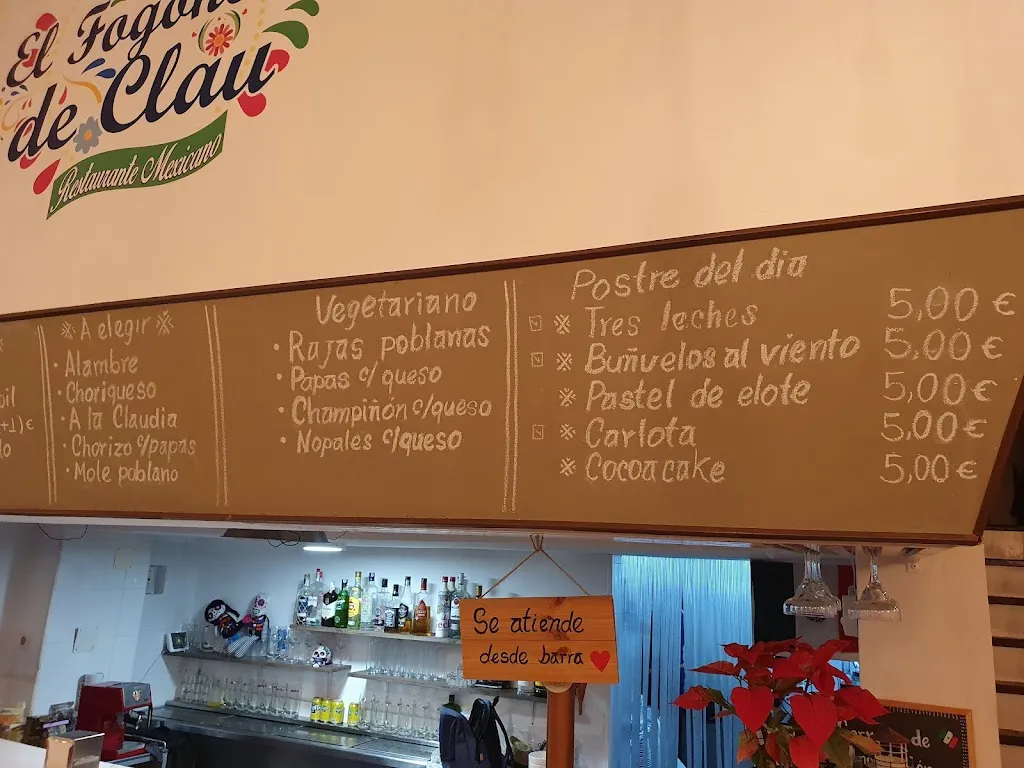 El Fogón
de Clau
Restaurante Mexicano
※ A elegir ※
· Alambre
· Chorigueso
· A la Claudia
· Chorizo c/papas
· Mole poblano
+1)€
Vegetariano
· Rajas poblanas
· Papas c/ queso
· Champiñón c/queso
· Nopales c/queso
Postre del dia
※ Tres leches 5,00 €
※ Buñuelos al viento 5,00 €
※ Pastel de elote 5,00 €
※ Carlota 5,00 €
※ Cocoacake 5,00 €
Se atiende
desde barra
de